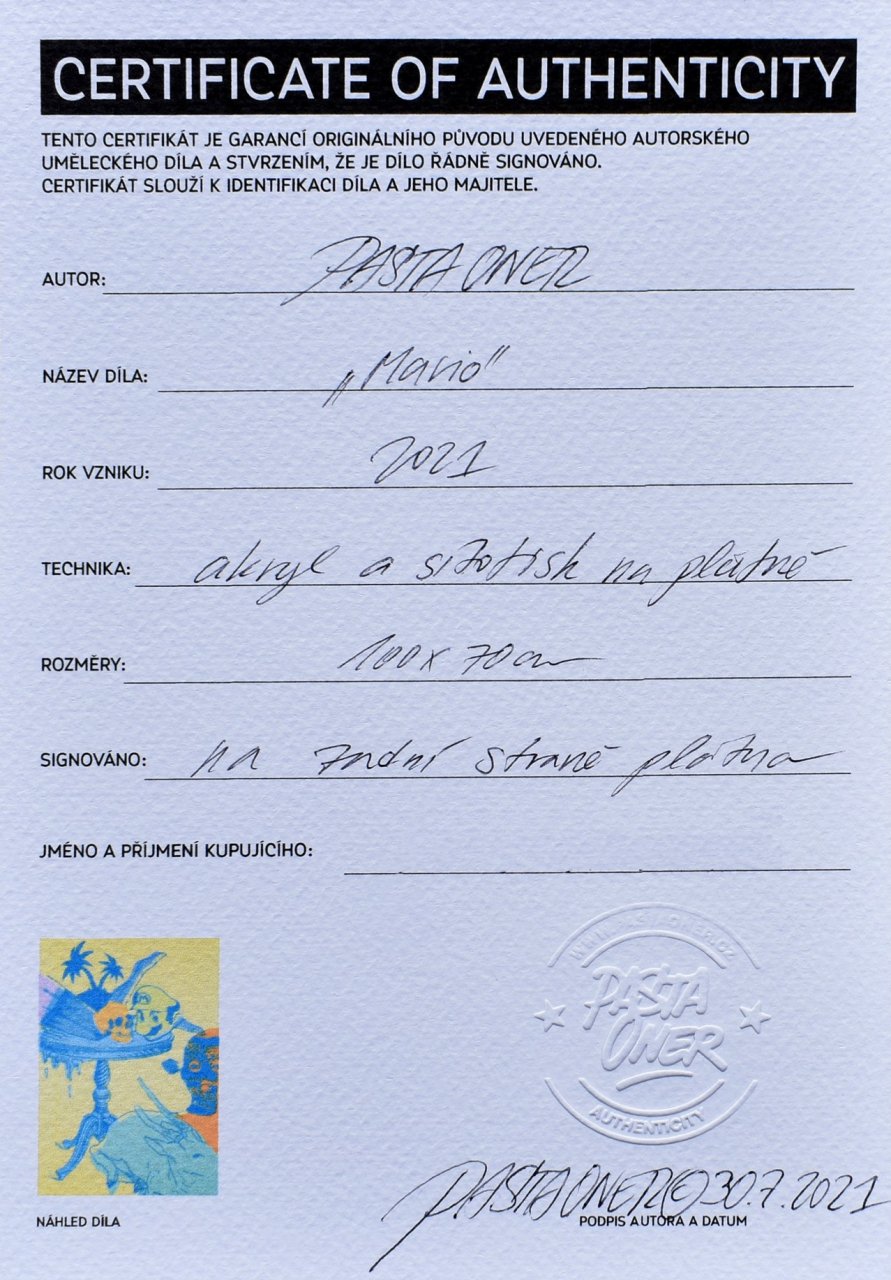 CERTIFICATE OF AUTHENTICITY
TENTO CERTIFIKÁT JE GARANCÍ ORIGINÁLNÍHO PŮVODU UVEDENÉHO AUTORSKÉHO
UMĚLECKÉHO DÍLA A STVRZENÍM, ŽE JE DÍLO ŘÁDNĚ SIGNOVÁNO.
CERTIFIKÁT SLOUŽÍ K IDENTIFIKACI DÍLA A JEHO MAJITELE.
AUTOR: PASTA ONER
NÁZEV DÍLA: „Mario“
ROK VZNIKU: 2021
TECHNIKA: akryl a sítotisk na plátně
ROZMĚRY: 100x70cm
SIGNOVÁNO: na zadní straně plátna
JMÉNO A PŘÍJMENÍ KUPUJÍCÍHO:
WWW.PASTAONER.CZ
PASTA
ONER
AUTHENTICITY
PASTA ONER © 30.7.2021
NÁHLED DÍLA
PODPIS AUTORA A DATUM